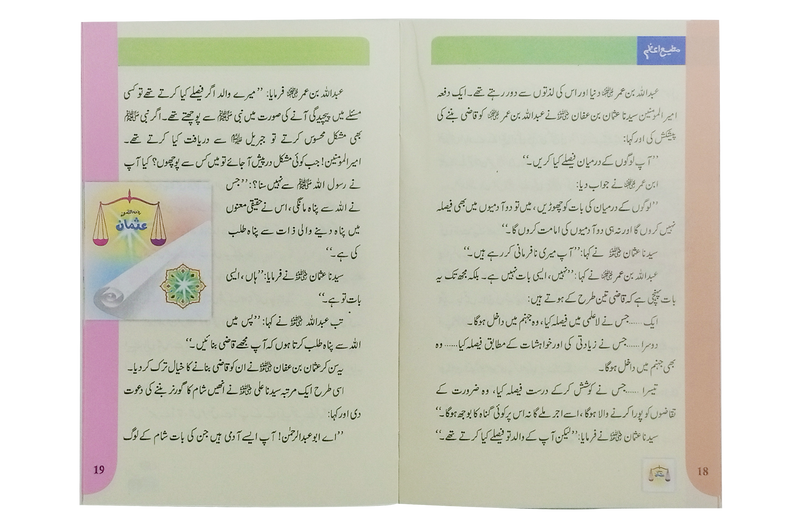 مطیع اعظم
عبداللہ بن عمر رضی اللہ عنہما دنیا اور اس کی لذتوں سے دور رہتے تھے۔ ایک دفعہ
امیر المؤمنین سیدنا عثمان بن عفان رضی اللہ عنہ نے عبداللہ بن عمر رضی اللہ عنہما کو قاضی بننے کی
پیشکش کی اور کہا:
’’آپ لوگوں کے درمیان فیصلے کیا کریں۔‘‘
ابن عمر رضی اللہ عنہما نے جواب دیا:
’’لوگوں کے درمیان کی بات کو چھوڑیں، میں تو دو آدمیوں میں بھی فیصلہ
نہیں کروں گا اور نہ ہی دو آدمیوں کی امامت کروں گا۔‘‘
سیدنا عثمان رضی اللہ عنہ نے کہا: ’’آپ میری نافرمانی کر رہے ہیں۔‘‘
عبداللہ بن عمر رضی اللہ عنہما نے کہا: ’’نہیں، ایسی بات نہیں ہے۔ بلکہ مجھ تک یہ
بات پہنچی ہے کہ قاضی تین طرح کے ہوتے ہیں:
ایک ..... جس نے لاعلمی میں فیصلہ کیا، وہ جہنم میں داخل ہوگا۔
دوسرا ..... جس نے زیادتی کی اور خواہشات کے مطابق فیصلہ کیا ..... وہ
بھی جہنم میں داخل ہوگا۔
تیسرا ..... جس نے کوشش کر کے درست فیصلہ کیا، وہ ضرورت کے
تقاضوں کو پورا کرنے والا ہوگا، اسے اجر ملے گا نہ اس پر کوئی گناہ کا بوجھ ہوگا۔‘‘
سیدنا عثمان رضی اللہ عنہ نے فرمایا: ’’لیکن آپ کے والد تو فیصلے کیا کرتے تھے۔‘‘
18
عبداللہ بن عمر رضی اللہ عنہما فرمایا: ’’میرے والد اگر فیصلے کیا کرتے تھے تو کسی
مسئلے میں پیچیدگی آنے کی صورت میں نبی ﷺ سے پوچھتے تھے۔ اگر نبی ﷺ
بھی مشکل محسوس کرتے تو جبریل علیہ السلام سے دریافت کیا کرتے تھے۔
امیر المؤمنین! جب کوئی مشکل در پیش آ جائے تو میں کس سے پوچھوں؟ کیا آپ
نے رسول اللہ ﷺ سے نہیں سنا؟: ’’جس
نے اللہ سے پناہ مانگی، اس نے حقیقی معنوں
میں پناہ دینے والی ذات سے پناہ طلب
کی ہے۔‘‘
سیدنا عثمان رضی اللہ عنہ نے فرمایا: ’’ہاں، ایسی
بات تو ہے۔‘‘
تب عبداللہ رضی اللہ عنہ نے کہا: ’’پس میں
اللہ سے پناہ طلب کرتا ہوں کہ آپ مجھے قاضی بنائیں۔‘‘
یہ سن کر عثمان بن عفان رضی اللہ عنہ نے ان کو قاضی بنانے کا خیال ترک کر دیا۔
اسی طرح ایک مرتبہ سیدنا علی رضی اللہ عنہ نے انھیں شام کا گورنر بننے کی دعوت
دی اور کہا:
’’اے ابوعبدالرحمٰن! آپ ایسے آدمی ہیں جن کی بات شام کے لوگ
عثمان
19